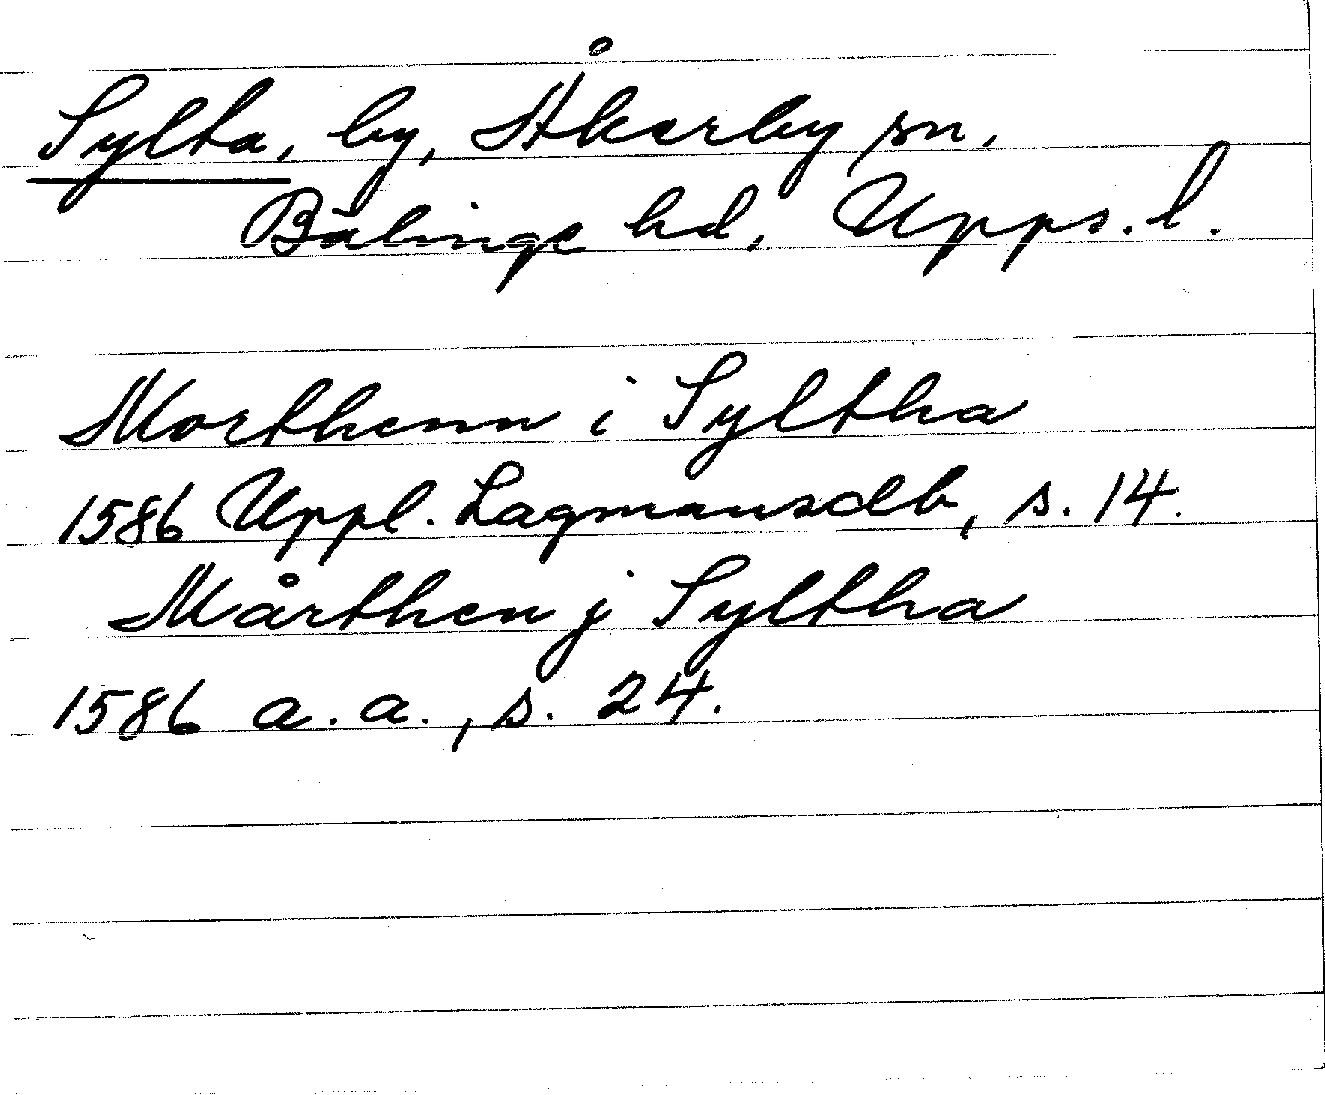 Sylta, by, Åkerby sn,
Bälinge hd, Upps. l.
Morthenn i Syltha
1586 Uppl. Lagmansdb, s. 14.
Mårthen j Syltha
1586 a. a., s. 24.